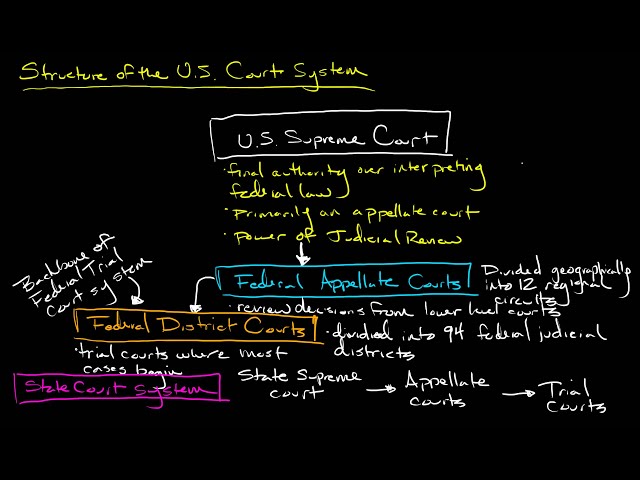 Structure of the U.S. Court System
U.S. Supreme Court
· final authority over interpreting
federal law
· primarily an appellate court
· Power of Judicial Review
Backbone of
Federal Trial
court system
Federal Appellate Courts
Divided geographically
into 12 regional
circuits
· review decisions from lower level courts
Federal District Courts
· divided into 94 federal judicial
districts
· trial courts where most
cases begin
State Court System
State Supreme
court
Appellate
courts
Trial
Courts